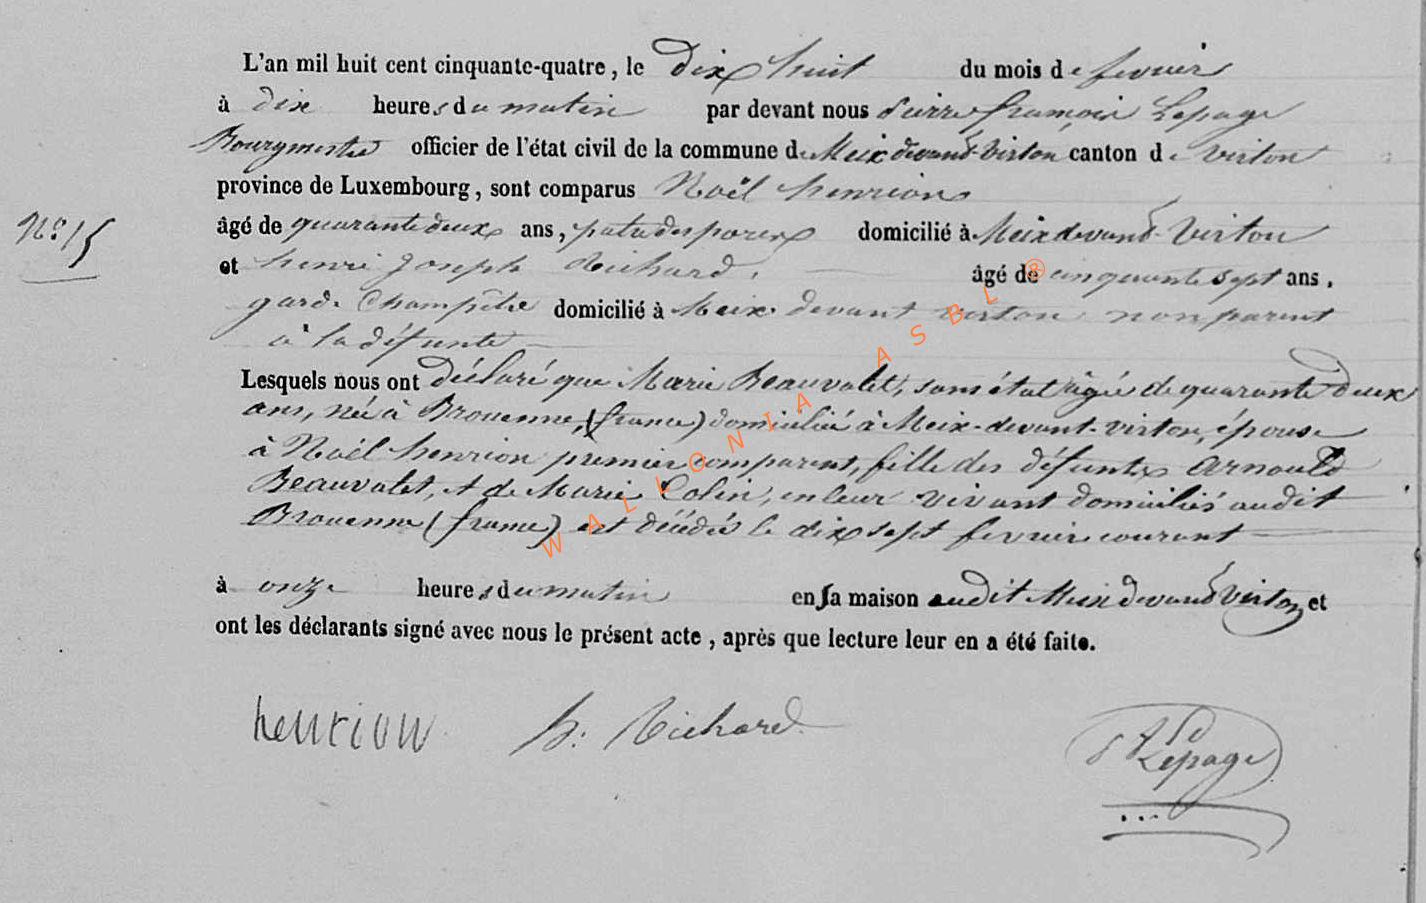 L'an mil huit cent cinquante-quatre, le Dix huit du mois de fevrier
à dix heures du matin par devant nous Pierre françois Lepage
Bourgmestre officier de l'état civil de la commune de Meix devant-Virton canton de Virton
province de Luxembourg, sont comparus Noël henrion
N° 15 âgé de quarante deux ans, domicilié à Meix devant-Virton
et henri Joseph Richard, âgé de cinquante sept ans,
garde Champêtre domicilié à Meix devant virton non parent
à la défunte
Lesquels nous ont Déclaré que Marie Beauvalet, sans état âgée de quarante deux
ans, née à Brouenne, (france) domiciliée à Meix-devant-virton, épouse
à Noël henrion premier comparant, fille des défunts Arnould
Beauvalet, et de Marie Colin, en leur vivant domiciliés audit
Brouenne (france) est décédée le dix sept fevrier courant
à onze heures du matin en sa maison audit Meix devant Virton et
ont les déclarants signé avec nous le présent acte, après que lecture leur en a été faite.
henrion h. Richard Lepage
WALLONIA ASBL ®